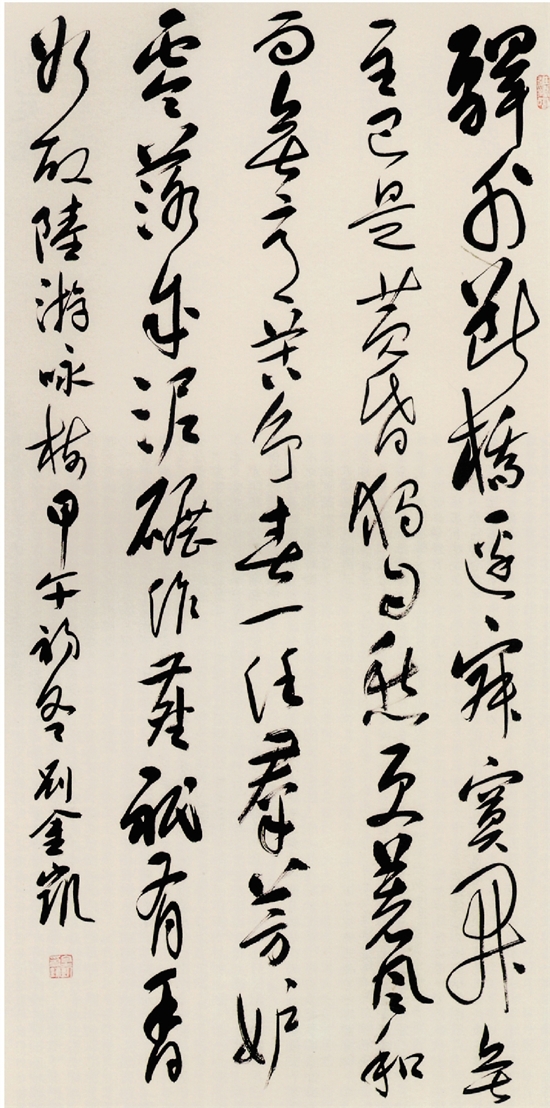 驛外斷橋邊寂寞開無
主已是黄昏獨自愁更著風和
雨無意苦爭春一任羣芳妒
零落成泥碾作塵祇有香
如故陸游咏梅甲午初冬劉金凱